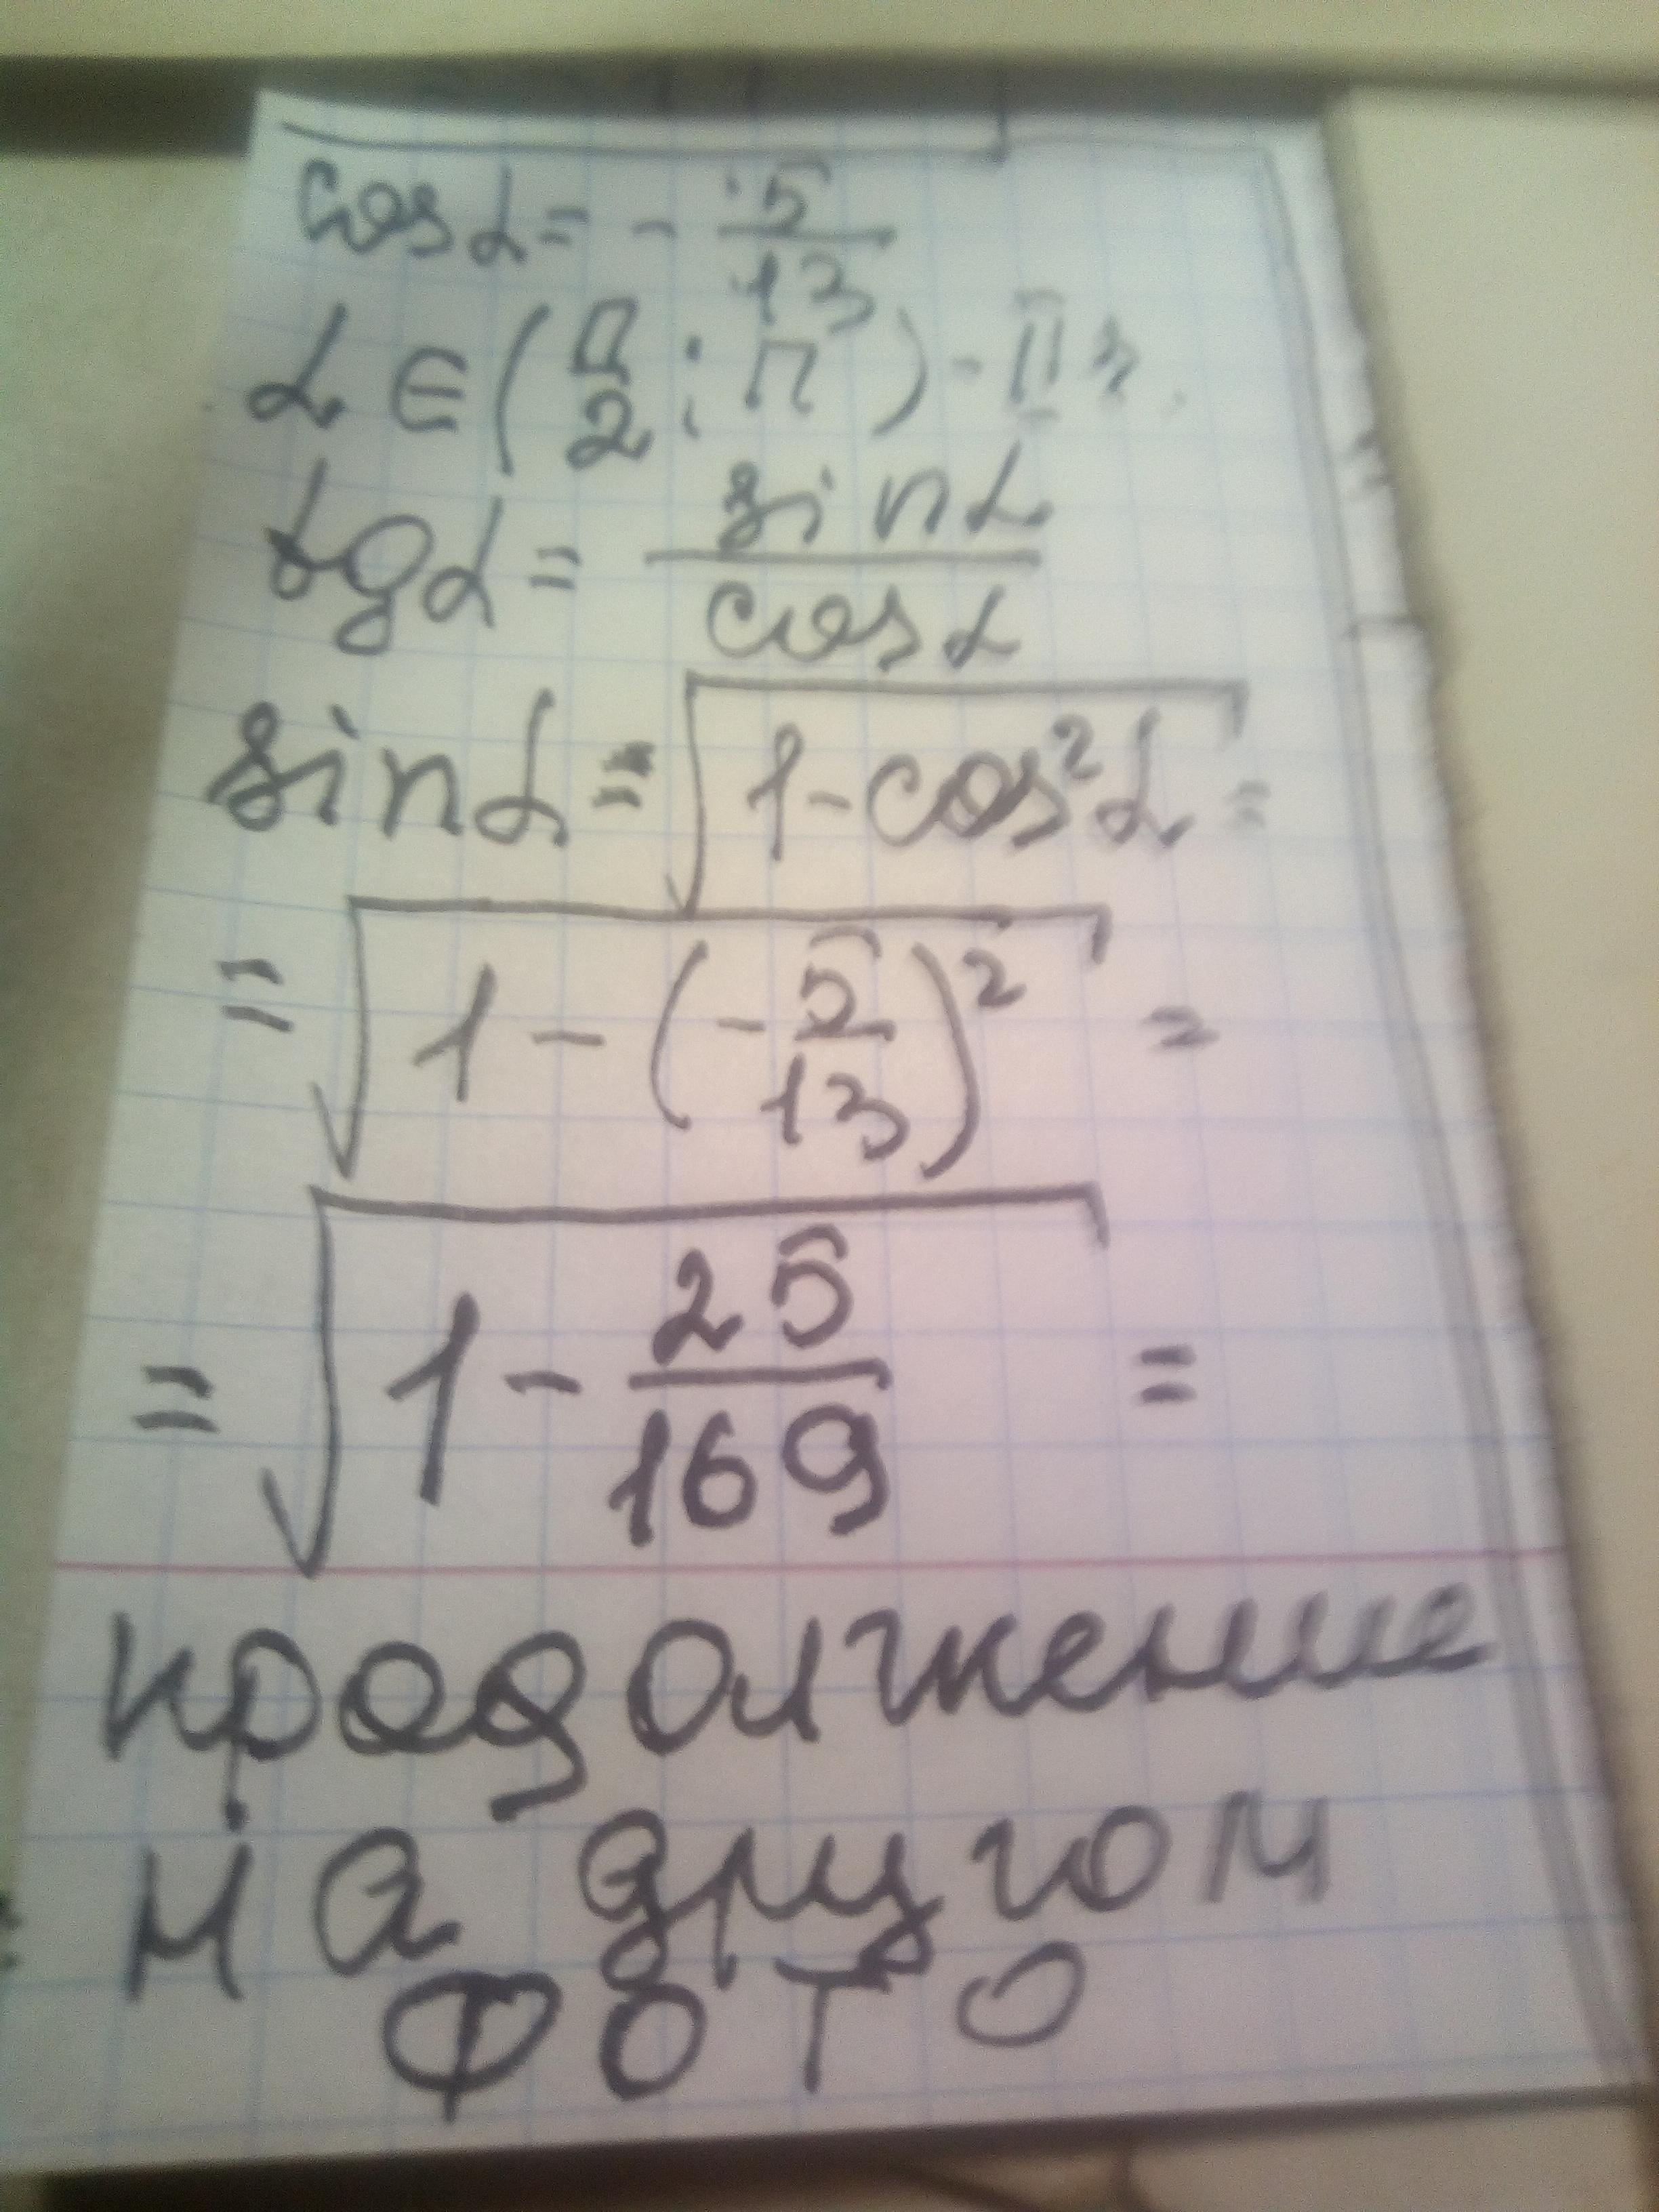 cosα = - 5/13
α ∈ (П/2 ; П) - II ч.
tgα = sinα/cosα
sinα = √(1-cos²α) =
= √(1 - (-5/13)²) =
= √(1 - 25/169) =
продолжение
на другом
ФОТО